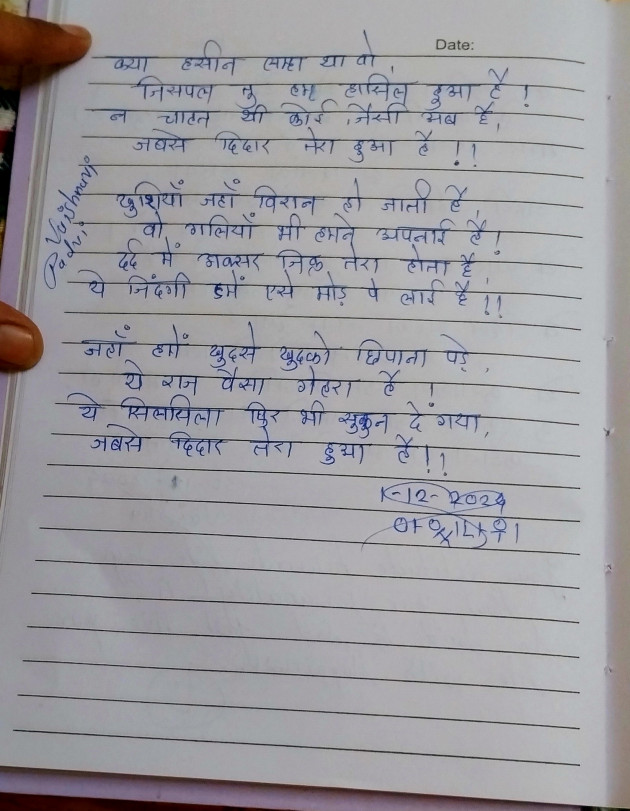 Date:
क्या हसीन लम्हा था वो,
जिसपल तु हमे हासिल हुआ है !
न चाहत थी कोई, जैसी अब है,
जबसे दिदार तेरा हुआ है !!
खुशियाँ जहाँ विरान हो जाती है,
वो गलियाँ भी हमने अपनाई है !
दर्द में अक्सर जिक्र तेरा होता है,
ये जिंदगी हमें एसे मोड़ पे लाई है !!
जहाँ हमें खुदसे खुदको छिपाना पड़े,
ये राज वैसा गेहरा है !
ये सिलसिला फिर भी सुकुन दे गया,
जबसे दिदार तेरा हुआ है !!
-12-2024
Vaishnavi
Padvi